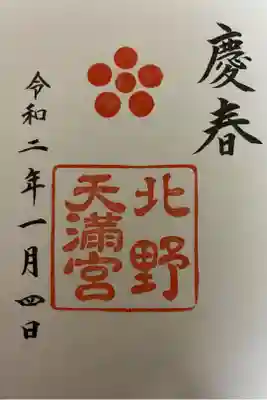 慶春
北野
天満宮
令和二年一月四日